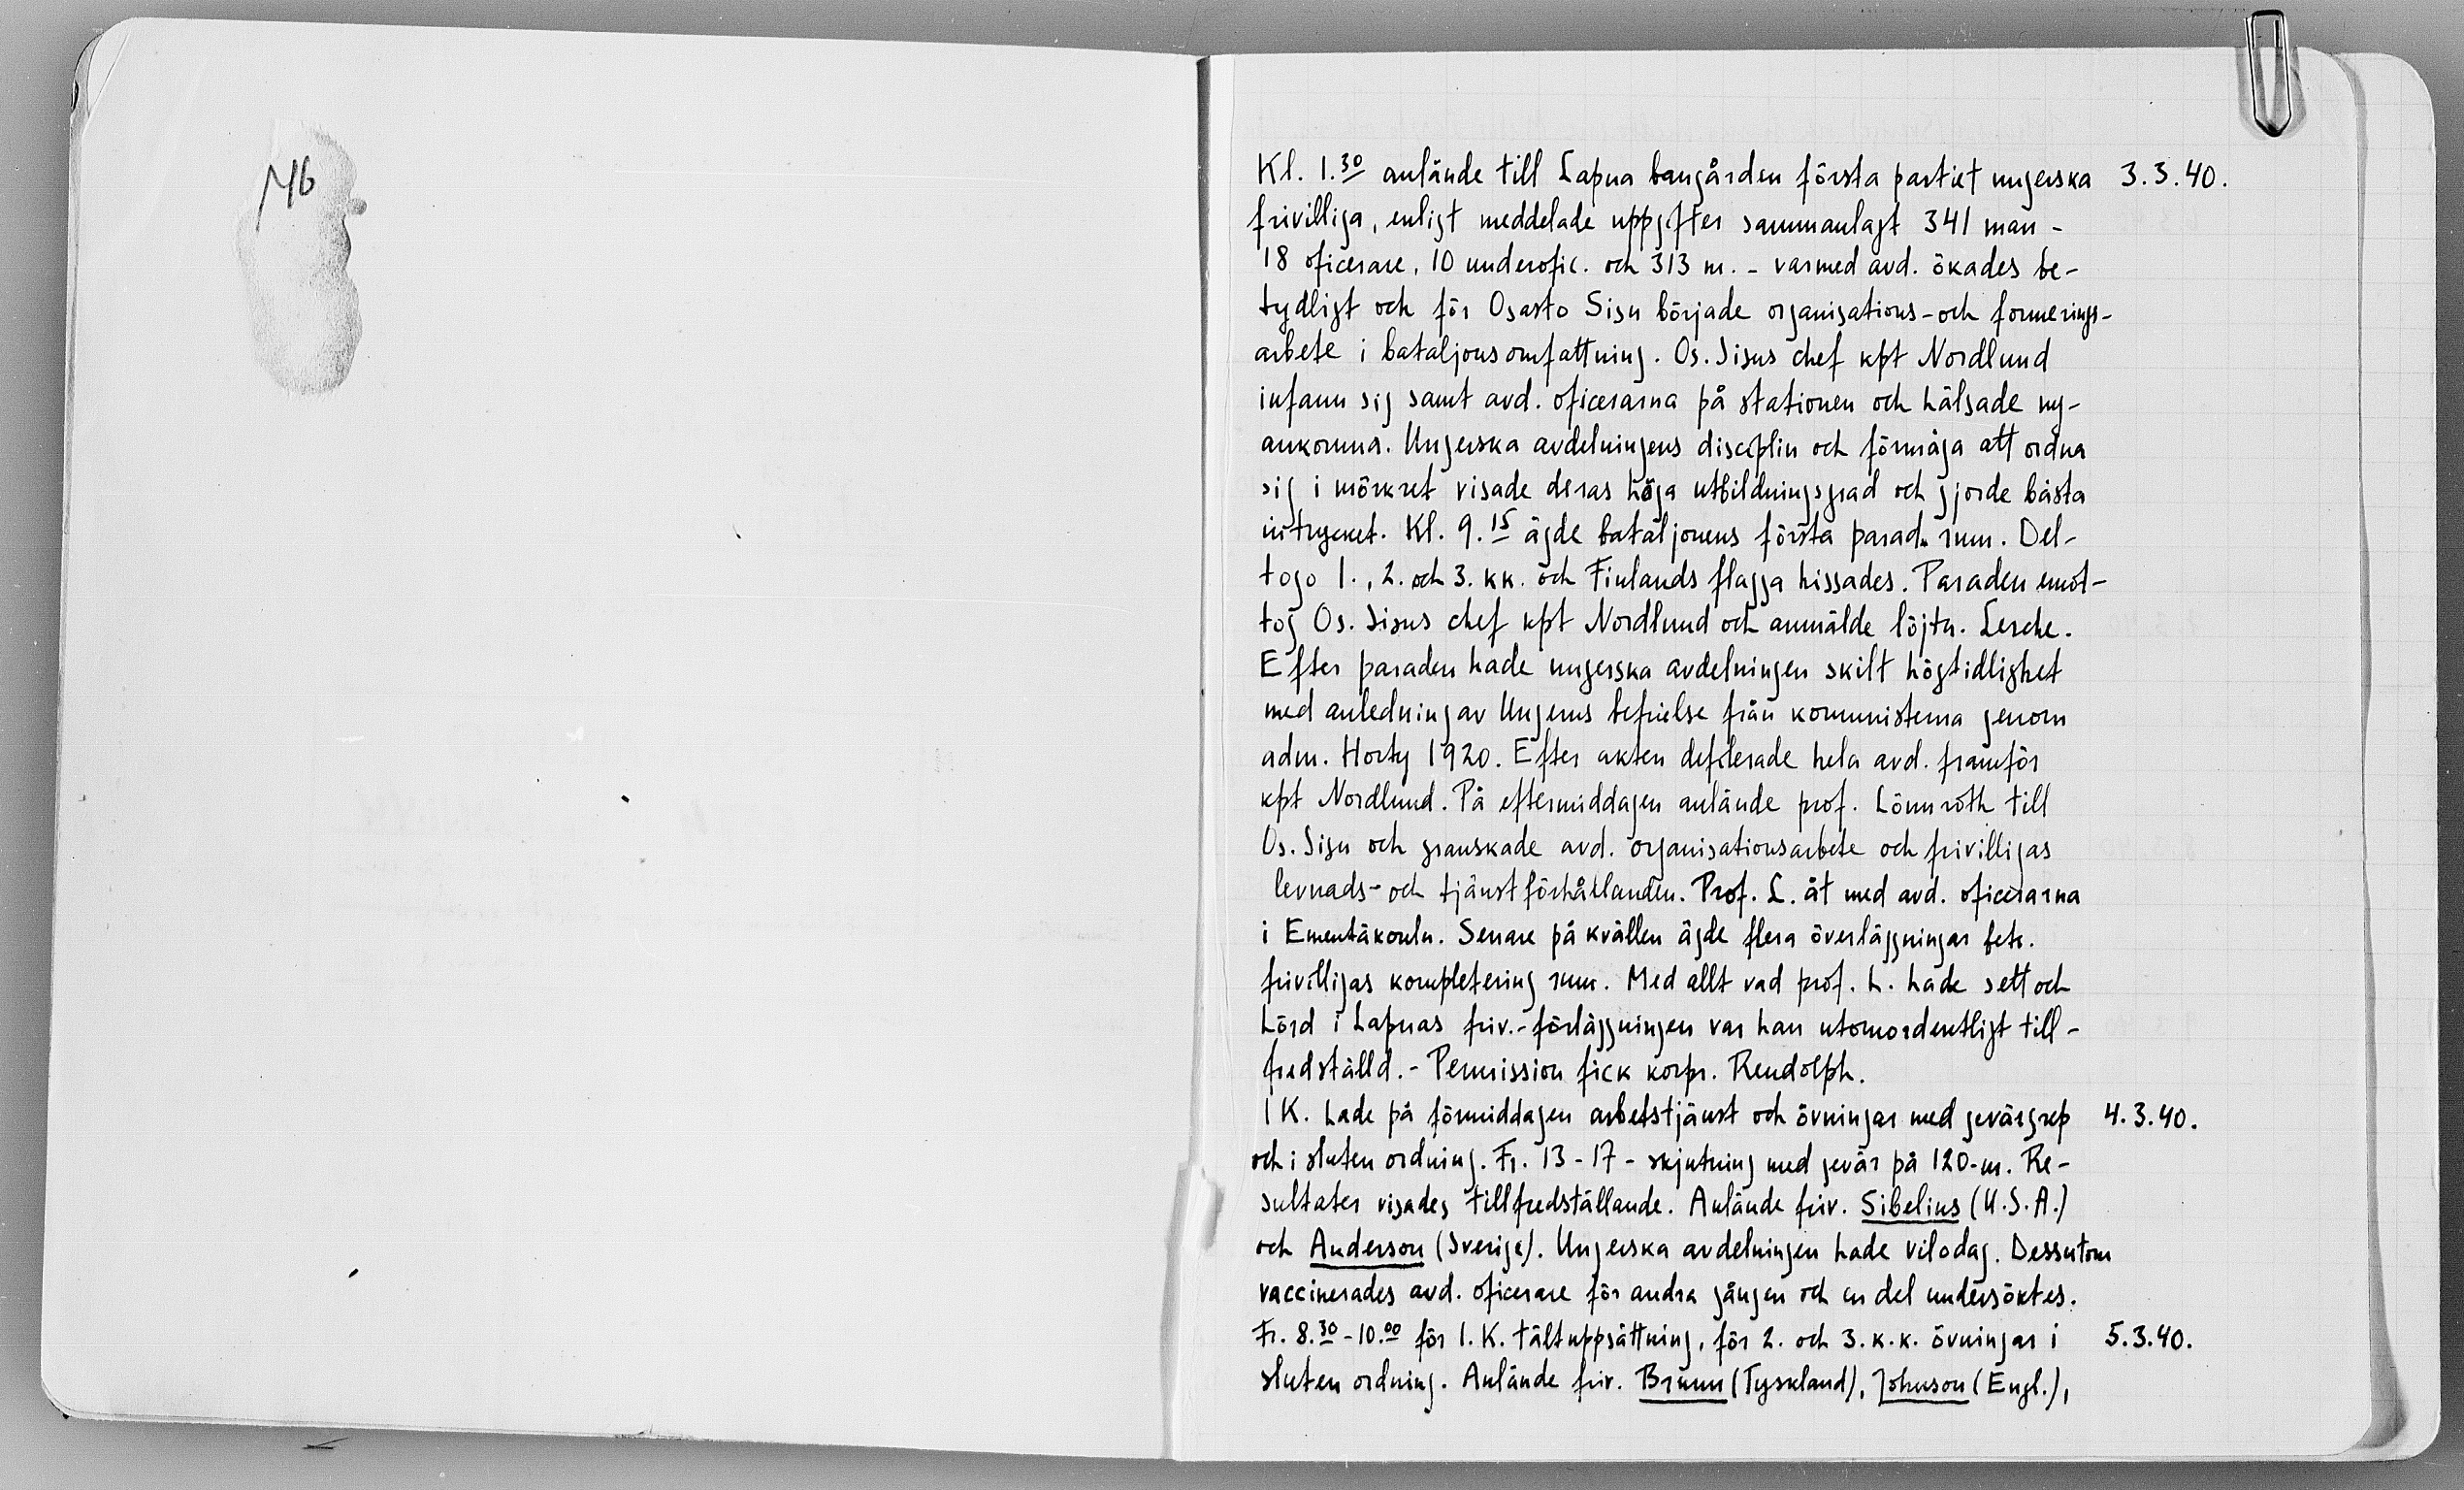 Mb
Kl. 1.30 anlände till Lapua bangården första partiet ungerska 3.3.40.
frivilliga, enligt meddelade uppgifter sammanlagt 341 man -
18 oficerare, 10 underofic. och 313 m. - varmed avd. ökades be-
tydligt och för Osasto Sisu började organisations- och formerings-
arbete i bataljonsomfattning. Os. Sisus chef kpt Nordlund
infann sig samt avd. oficerarna på stationen och hälsade ny-
ankomna. Ungerska avdelningens disciplin och förmåga att ordna
sig i mörkret visade deras höga utbildningsgrad och gjorde bästa
intrycket. Kl. 9.15 ägde bataljonens första parad rum. Del-
togo 1., 2. och 3. kk. och Finlands flagga hissades. Paraden emot-
tog Os. Sisus chef kpt Nordlund och anmälde löjtn. Lerche.
Efter paraden hade ungerska avdelningen skilt högtidlighet
med anledning av Ungerns befrielse från kommunisterna genom
adm. Horty 1920. Efter akten defilerade hela avd. framför
kpt Nordlund. På eftermiddagen anlände prof. Lönnroth till
Os. Sisu och granskade avd. organisationsarbete och frivilligas
levnads- och tjänstförhållanden. Prof. L. åt med avd. oficerarna
i Ementäkouln. Senare på kvällen ägde flera överläggningar betr.
frivilligas kompletering rum. Med allt vad prof. L. hade sett och
hörd i Lapuas friv.-förläggningen var han utomordentligt till-
fredställd. - Permission fick korpr. Rendolph.
1 K. hade på förmiddagen arbetstjänst och övningar med gevärgrep 4.3.40.
och i sluten ordning. Fr. 13 - 17 - skjutning med gevär på 120-m. Re-
sultater visades tillfredställande. Anlände friv. Sibelius (U.S.A.)
och Anderson (Sverige). Ungerska avdelningen hade vilodag. Dessutom
vaccinerades avd. oficerare för andra gången och en del undersöktes.
Fr. 8.30 - 10.00 för 1. K. tältuppsättning, för 2. och 3. k.k. övningar i 5.3.40.
sluten ordning. Anlände friv. Brunn (Tyskland), Johnson (Engl.),